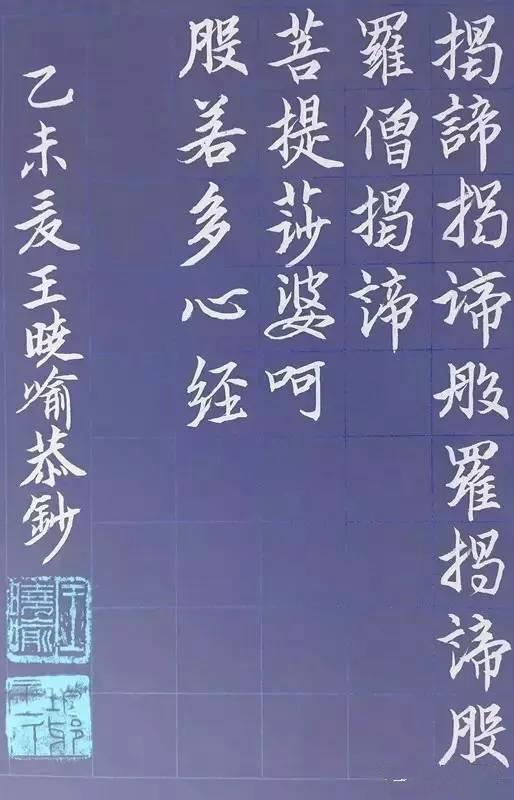 揭諦揭諦般羅揭諦般
羅僧揭諦
菩提莎婆呵
般若多心经
乙未夏王暁喻恭鈔